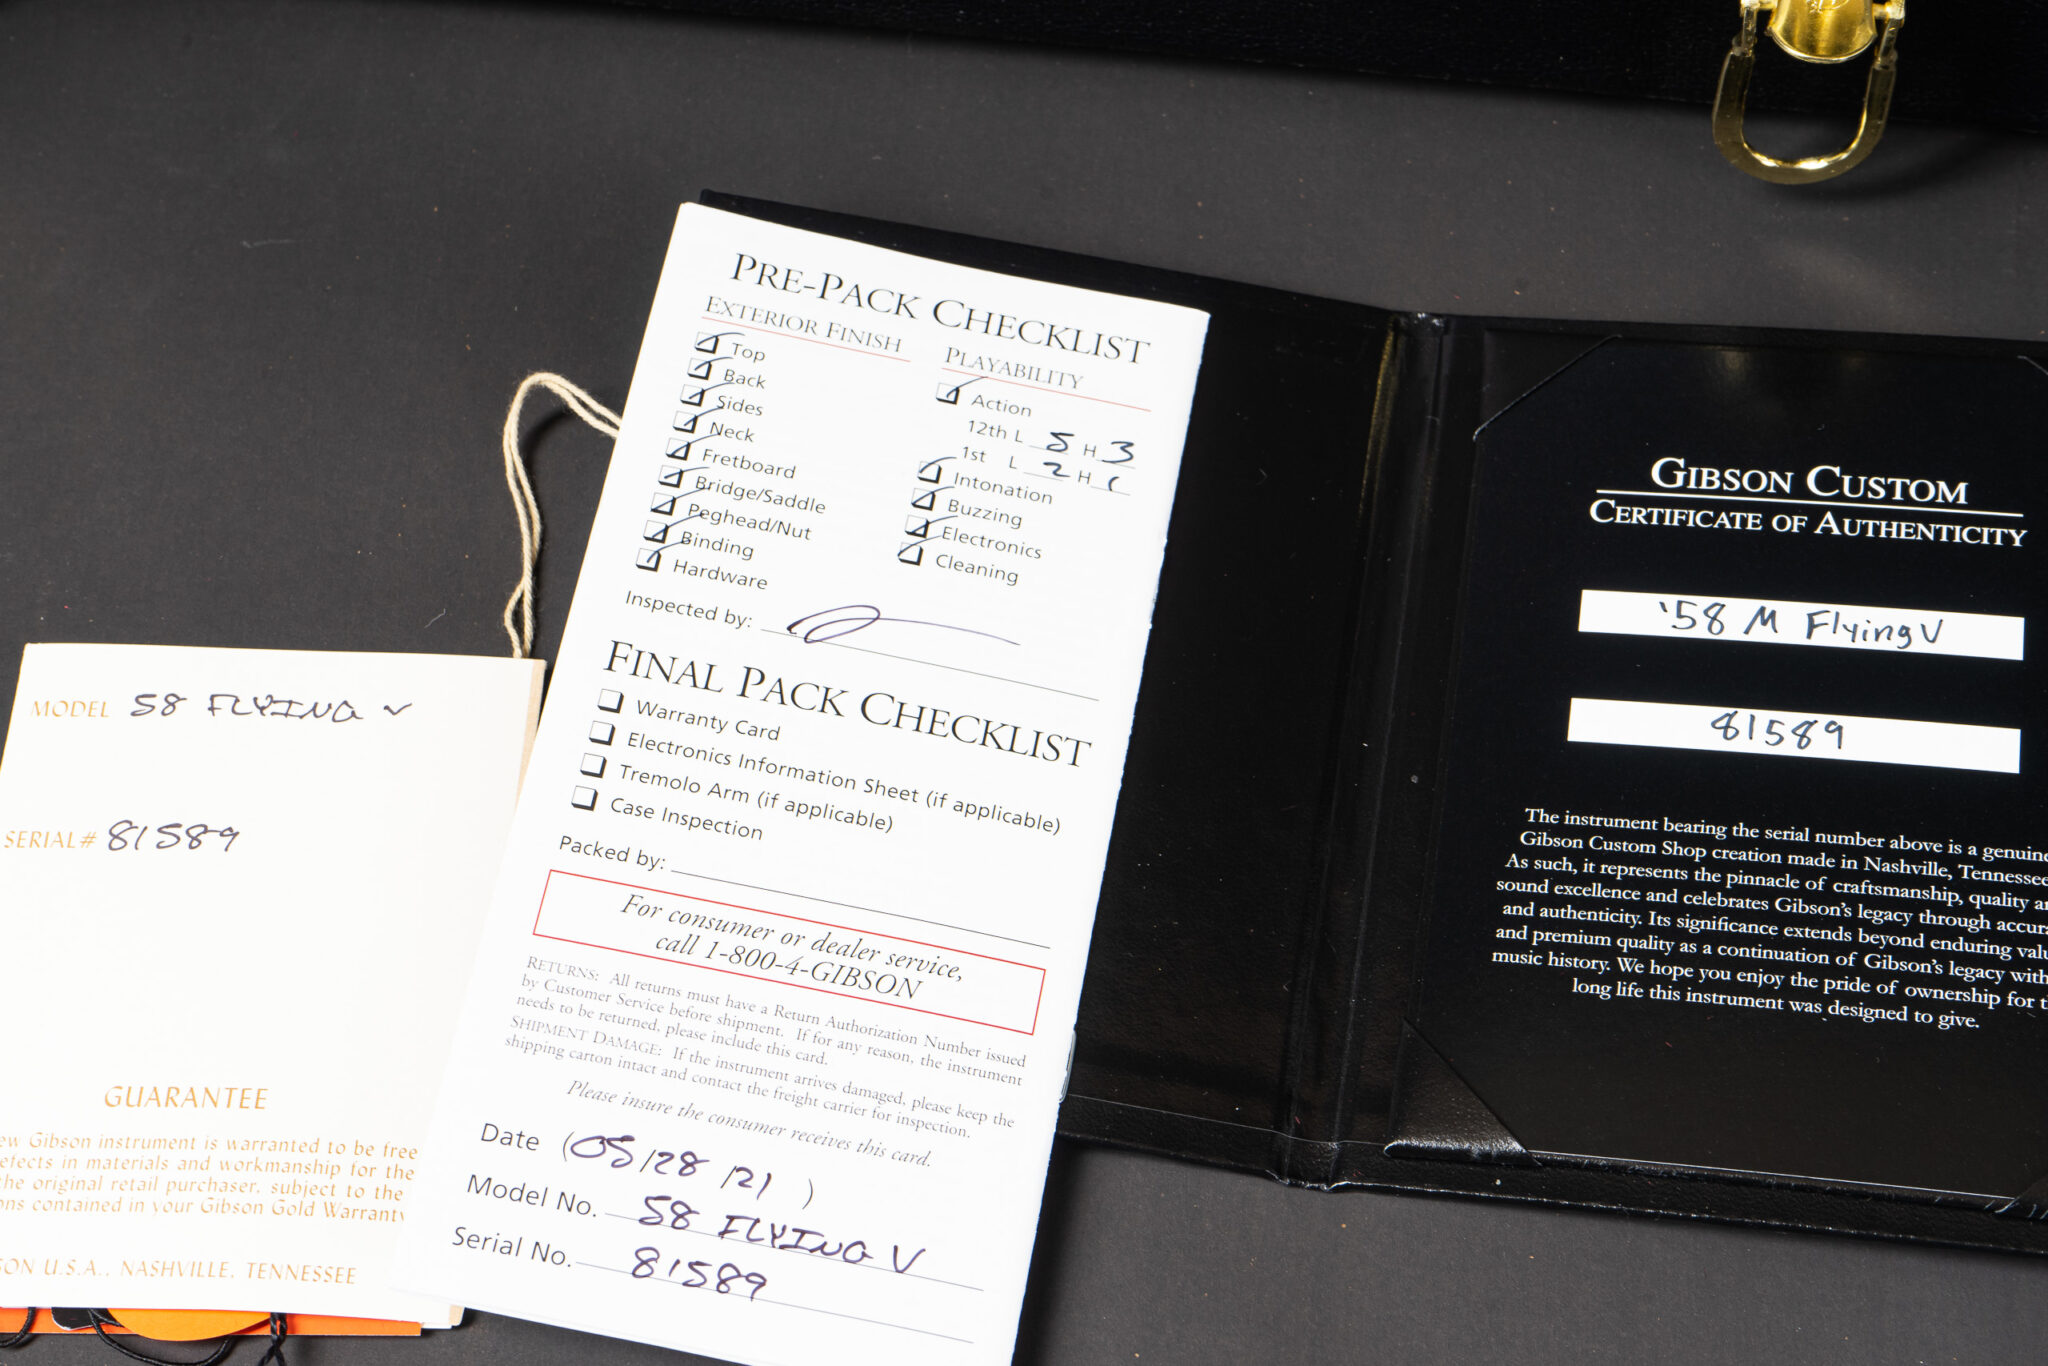 MODEL 58 FLYING V
SERIAL# 81589
GUARANTEE
Gibson instrument is warranted to be free
in materials and workmanship for the
original retail purchaser, subject to the
contained in your Gibson Gold Warranty
U.S.A., NASHVILLE, TENNESSEE
PRE-PACK CHECKLIST
EXTERIOR FINISH
Top
Back
Sides
Neck
Fretboard
Bridge/Saddle
Peghead/Nut
Binding
Hardware
PLAYABILITY
Action
12th L 5 H 3
1st L 2 H 1
Intonation
Buzzing
Electronics
Cleaning
Inspected by:
FINAL PACK CHECKLIST
Warranty Card
Electronics Information Sheet (if applicable)
Tremolo Arm (if applicable)
Case Inspection
Packed by:
For consumer or dealer service,
call 1-800-4-GIBSON
RETURNS: All returns must have a Return Authorization Number issued
by Customer Service before shipment. If for any reason, the instrument
needs to be returned, please include this card.
SHIPMENT DAMAGE: If the instrument arrives damaged, please keep the
shipping carton intact and contact the freight carrier for inspection.
Please insure the consumer receives this card.
Date (05/28/21)
Model No. 58 FLYING V
Serial No. 81589
GIBSON CUSTOM
CERTIFICATE OF AUTHENTICITY
'58 M Flying V
81589
The instrument bearing the serial number above is a genuine
Gibson Custom Shop creation made in Nashville, Tennessee.
As such, it represents the pinnacle of craftsmanship, quality
sound excellence and celebrates Gibson's legacy through
and authenticity. Its significance extends beyond enduring
and premium quality as a continuation of Gibson's legacy
music history. We hope you enjoy the pride of ownership for
long life this instrument was designed to give.